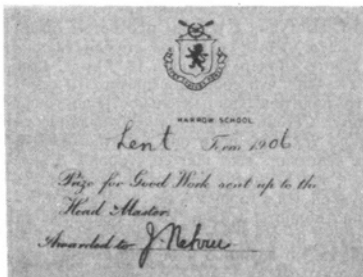 HARROW SCHOOL
Lent Term 1906
Prize for Good Work sent up to the
Head Master.
Awarded to J. Nehru